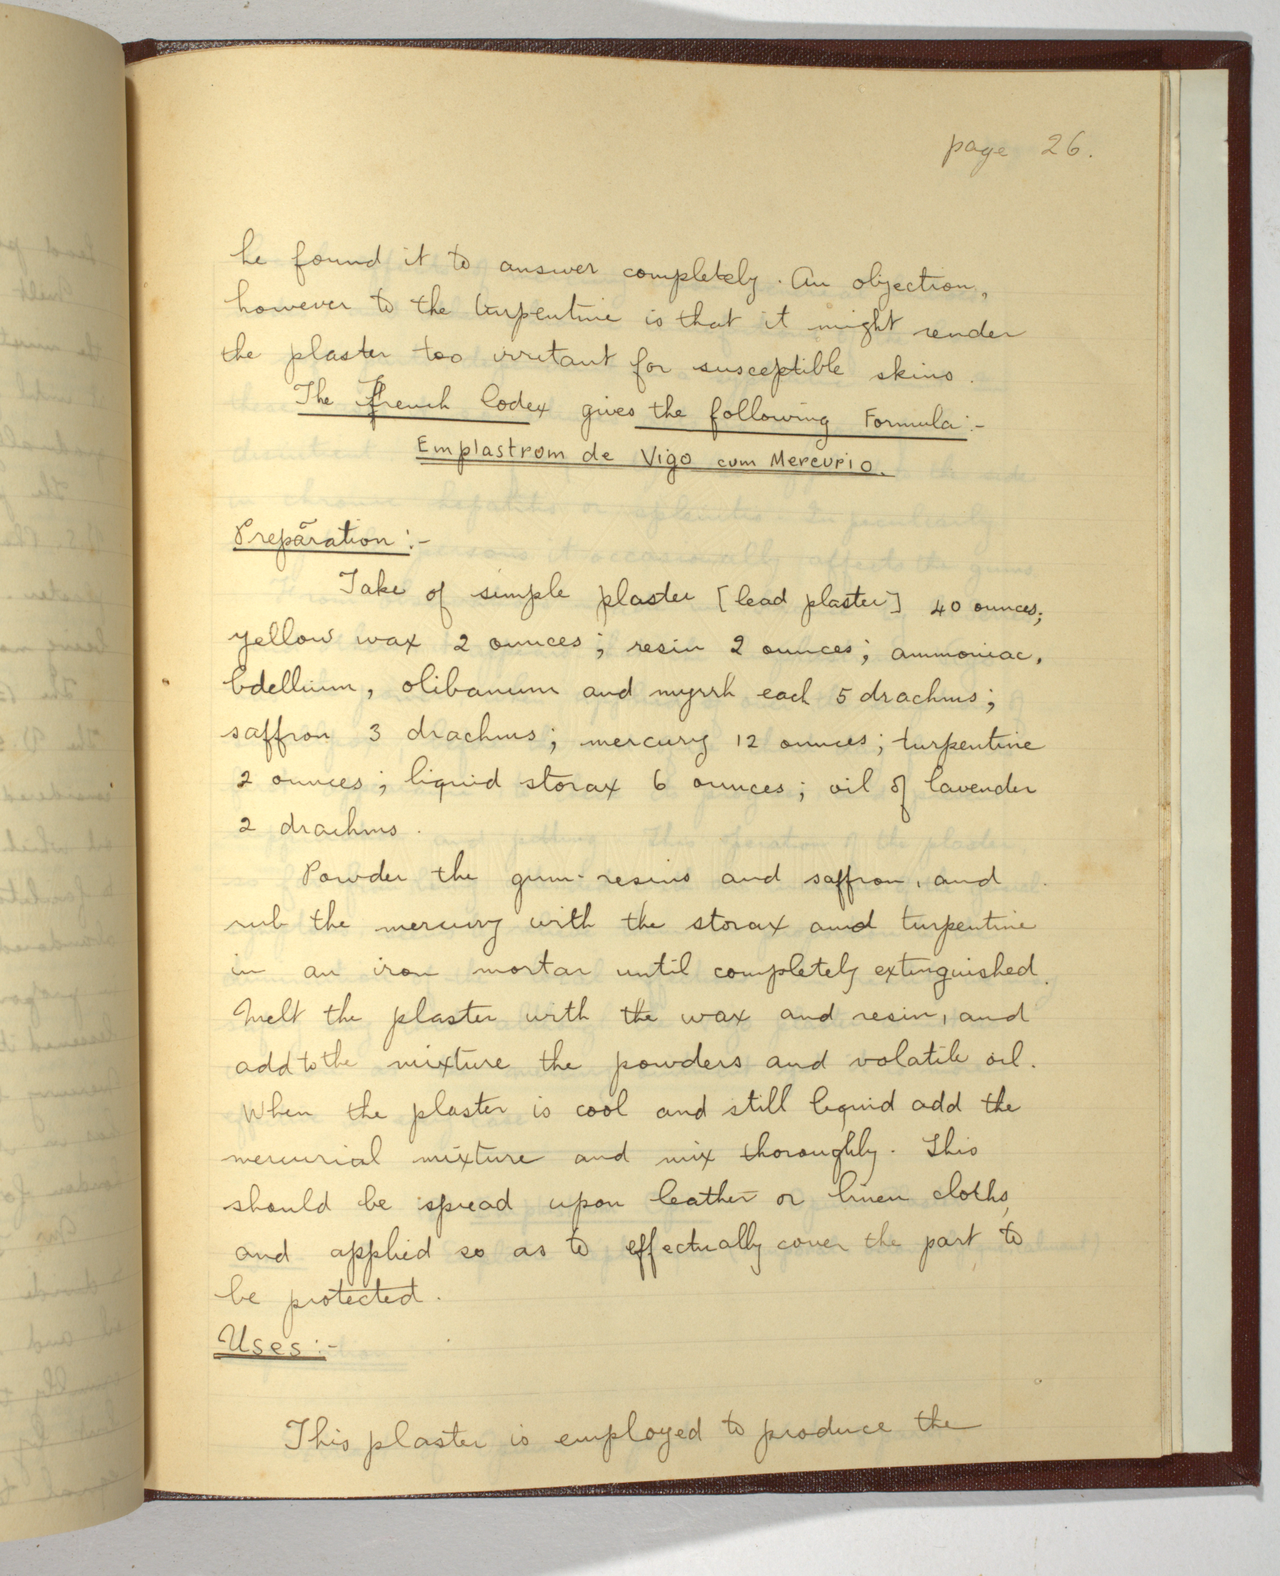 page 26.
he found it to answer completely. An objection,
however to the turpentine is that it might render
the plaster too irritant for susceptible skins.
The French Codex gives the following Formula:-
Emplastrom de Vigo cum Mercurio.
Preparation:-
Take of simple plaster [lead plaster] 40 ounces;
yellow wax 2 ounces; resin 2 ounces; ammoniac,
bdellium, olibanum and myrrh each 5 drachms;
saffron 3 drachms; mercury 12 ounces; turpentine
2 ounces; liquid storax 6 ounces; oil of lavender
2 drachms.
Powder the gum-resins and saffron, and
rub the mercury with the storax and turpentine
in an iron mortar until completely extinguished.
Melt the plaster with the wax and resin, and
add to the mixture the powders and volatile oil.
When the plaster is cool and still liquid add the
mercurial mixture and mix thoroughly. This
should be spread upon leather or linen cloths,
and applied so as to effectually cover the part to
be protected.
Uses:-
This plaster is employed to produce the